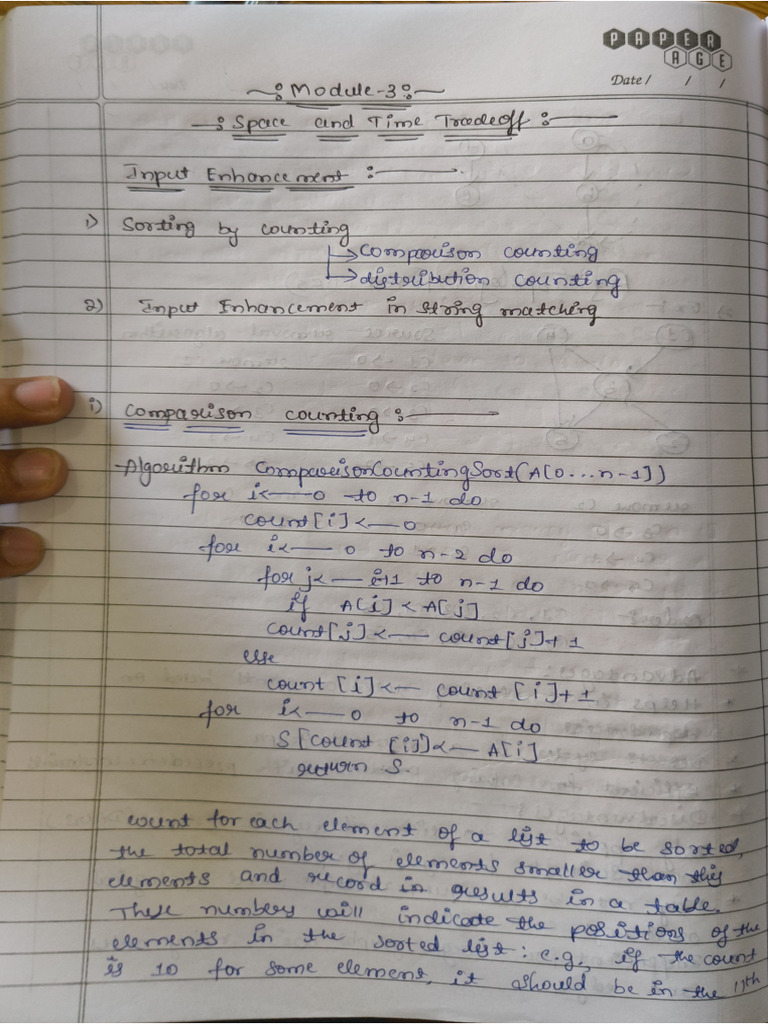 PAPER
AGE
Date / / /
Module-3
Space and Time Tradeoff :
Input Enhancement :
1) Sorting by counting
→ comparison counting
→ distribution counting
2) Input Enhancement in string matching
i) Comparison counting :
Algorithm ComparisonCountingSort(A[0...n-1])
for i<—0 to n-1 do
count[i]<—0
for i<— 0 to n-2 do
for j<— i+1 to n-1 do
if A[i] < A[j]
count[j]<— count[j]+1
else
count [i]<— count [i]+1
for i<—0 to n-1 do
S[count [i]]<— A[i]
return S.
count for each element of a list to be sorted,
the total number of elements smaller than this
elements and record in results in a table.
These numbers will indicate the positions of the
elements in the sorted list: e.g., if the count
is 10 for some element, it should be in the 11th